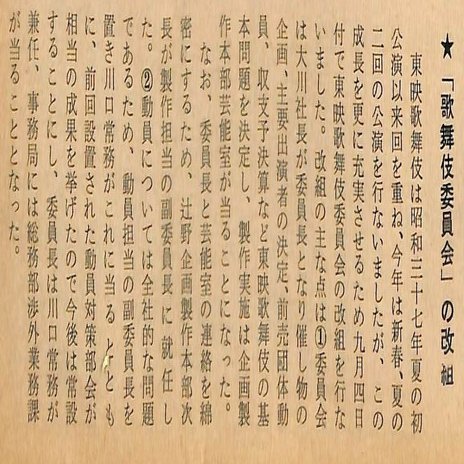 ★「歌舞伎委員会」の改組
東映歌舞伎は昭和三十七年夏の初
公演以来回を重ね、今年は新春、夏の
二回の公演を行ないましたが、この
成長を更に充実させるため九月四日
付で東映歌舞伎委員会の改組を行な
いました。改組の主な点は①委員会
は大川社長が委員長となり催し物の
企画、主要出演者の決定、前売団体動
員、収支予決算など東映歌舞伎の基
本問題を決定し、製作実施は企画製
作本部芸能室が当ることになった。
なお、委員長と芸能室の連絡を綿
密にするため、辻野企画製作本部次
長が製作担当の副委員長に就任し
た。②動員については全社的な問題
であるため、動員担当の副委員長を
置き川口常務がこれに当るととも
に、前回設置された動員対策部会が
相当の成果を挙げたので今後は常設
することにし、委員長は川口常務が
兼任、事務局には総務部渉外業務課
が当ることとなった。